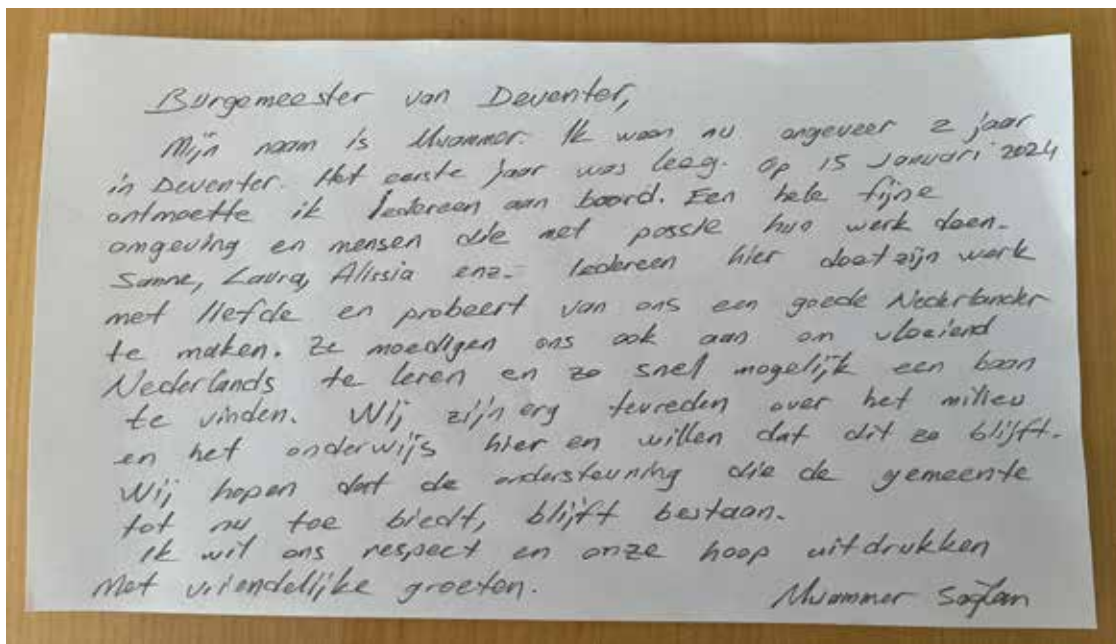 Burgemeester van Deventer,
Mijn naam is Muammer. Ik woon nu ongeveer 2 jaar
in Deventer. Het eerste jaar was leeg. Op 15 Januari 2024
ontmoette ik iedereen aan boord. Een hele fijne
omgeving en mensen die met passie hun werk doen.
Sanne, Laura, Alissia enz. Iedereen hier doet zijn werk
met liefde en probeert van ons een goede Nederlander
te maken. Ze moedigen ons ook aan om vloeiend
Nederlands te leren en zo snel mogelijk een baan
te vinden. Wij zijn erg tevreden over het milieu
en het onderwijs hier en willen dat dit zo blijft.
Wij hopen dat de ondersteuning die de gemeente
tot nu toe biedt, blijft bestaan.
Ik wil ons respect en onze hoop uitdrukken
Met vriendelijke groeten.
Muammer